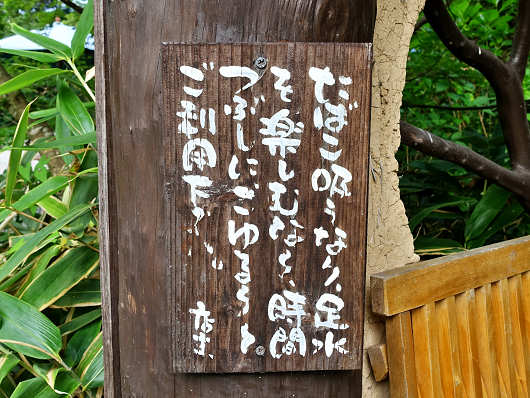 たばこ吸うなり、足水
を楽しむなり、時間
つぶしにごゆるりと
ご利用下さい。 店主